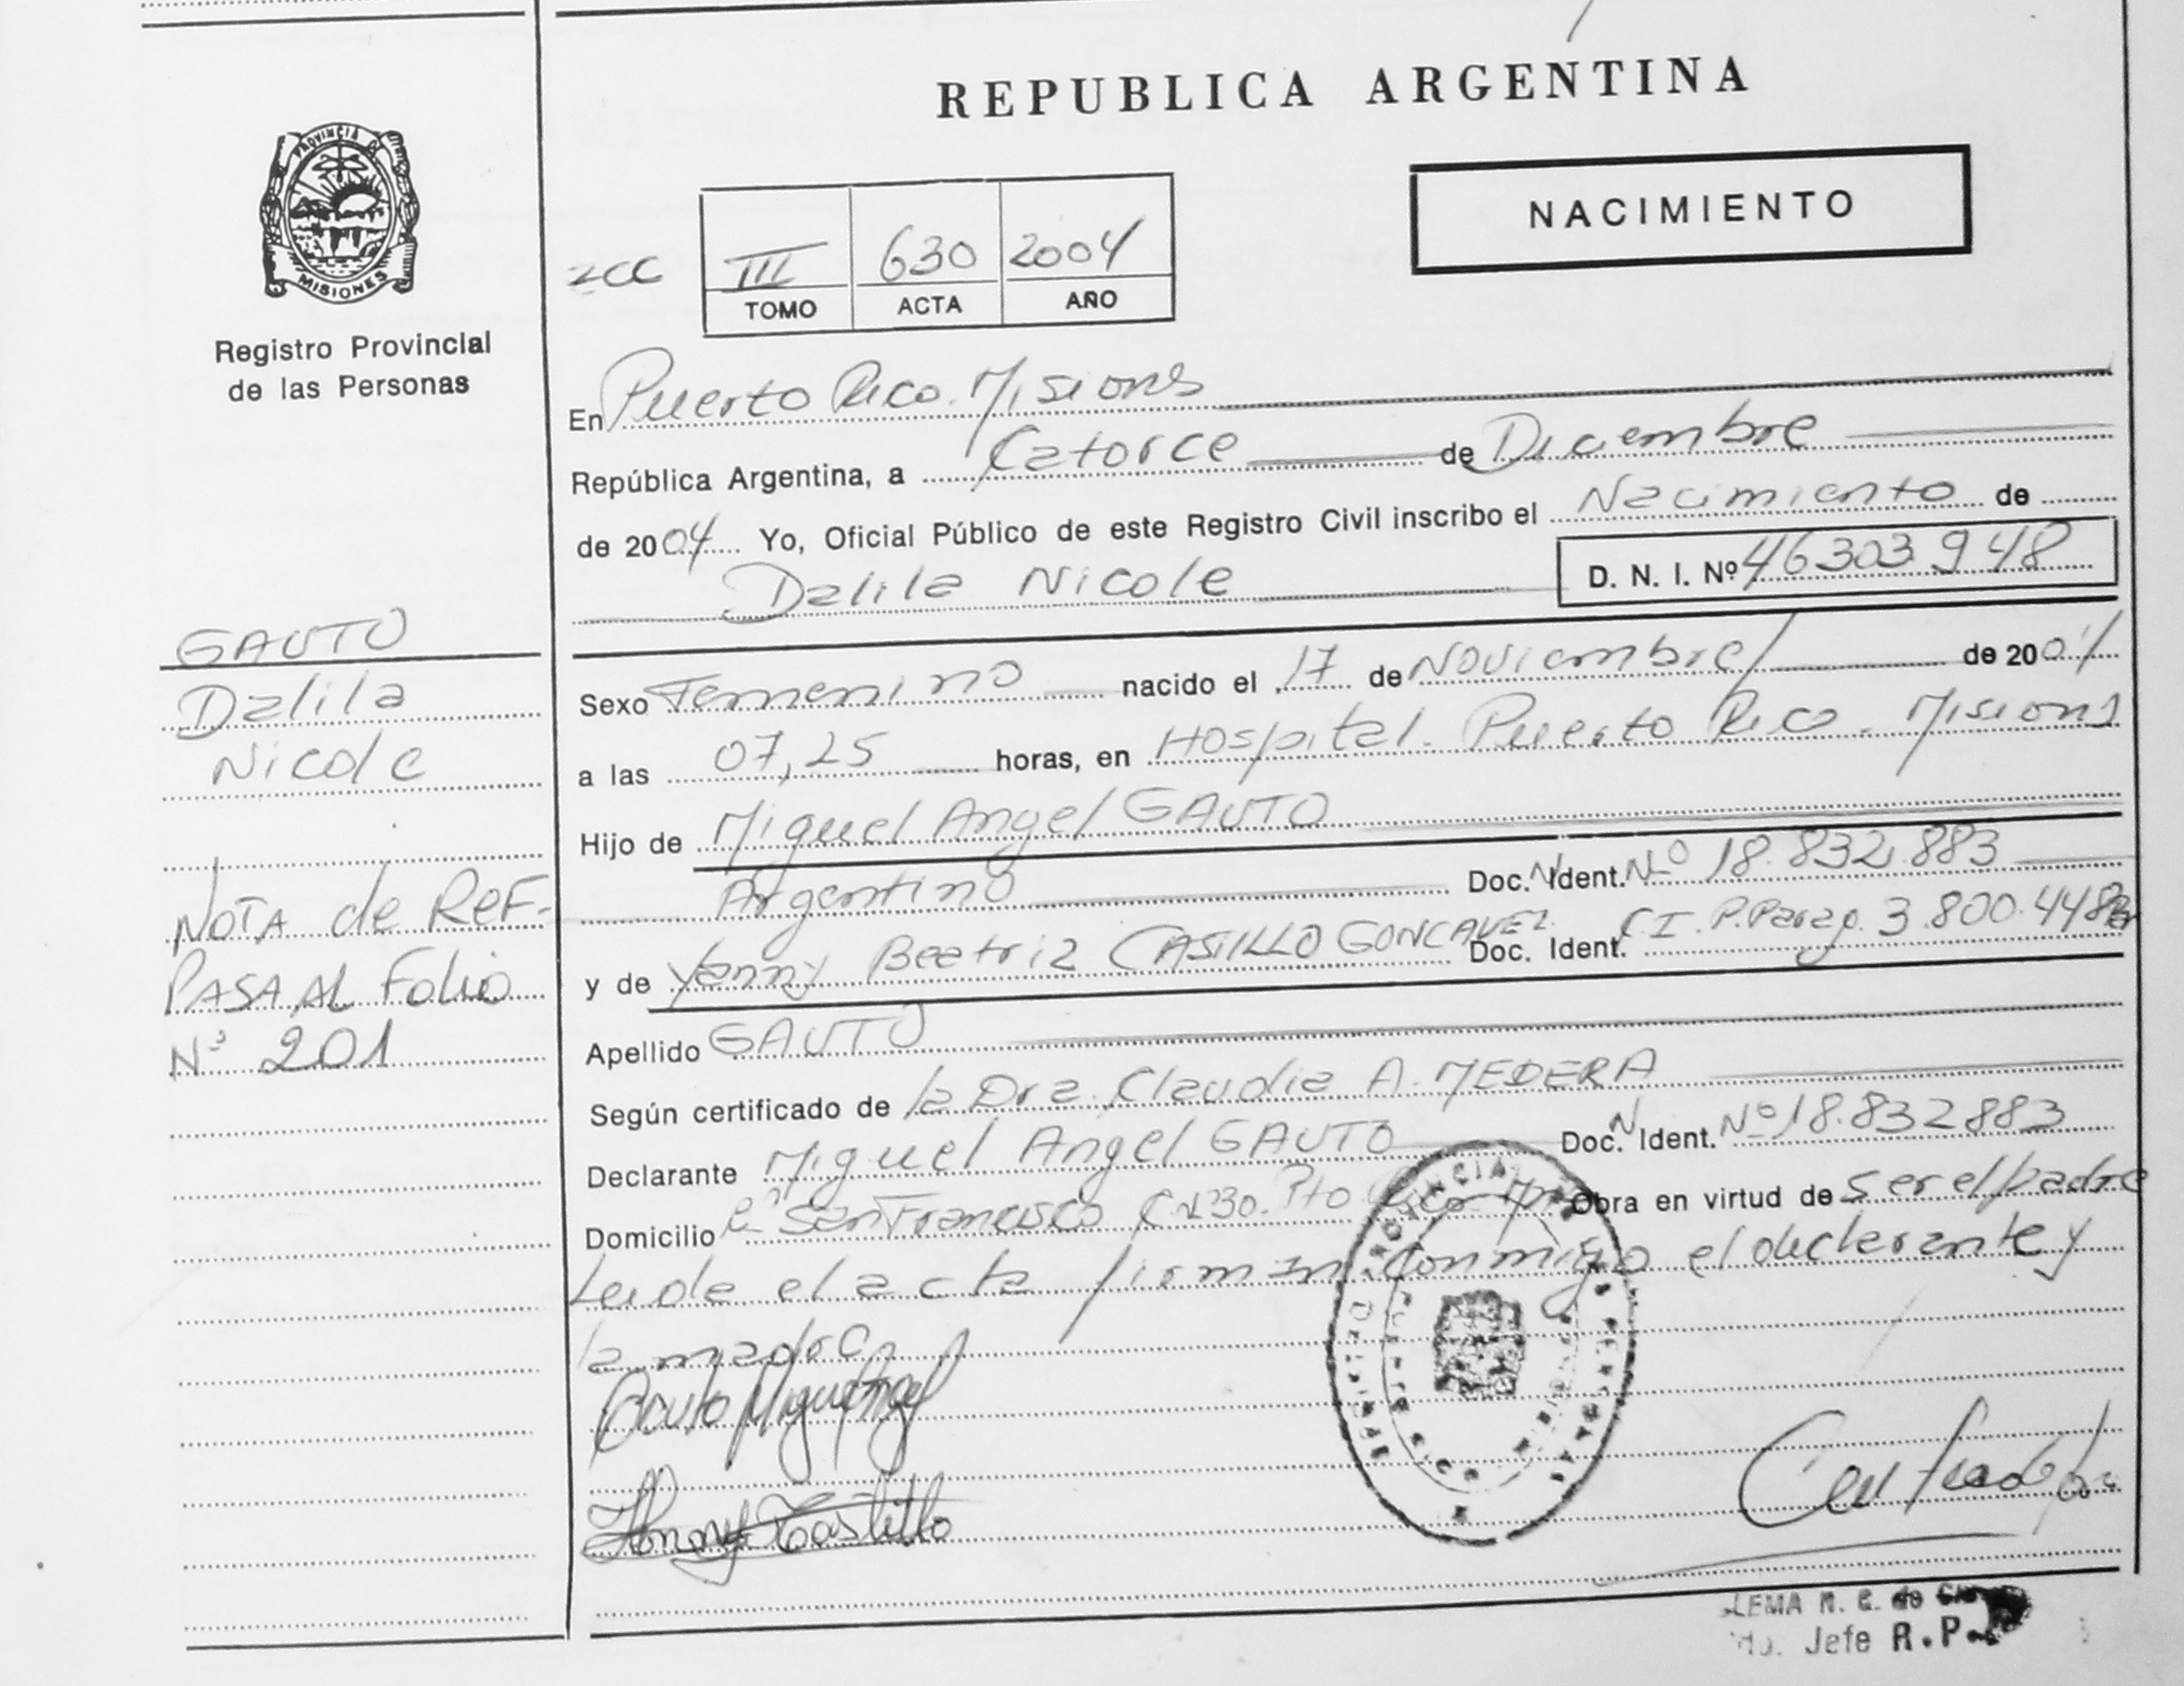 REPUBLICA ARGENTINA
NACIMIENTO
PROVINCIA DE
MISIONES
Registro Provincial
de las Personas
III 630 2004
TOMO ACTA AÑO
En Puerto Rico. Misiones
República Argentina, a Catorce de Diciembre
de 2004 Yo, Oficial Público de este Registro Civil inscribo el Nacimiento de
Dalila Nicole D. N. I. Nº 46303948
GAUTO
Dalila
Nicole
NOTA de REF-
PASA AL Folio
Nº 201
Sexo Femenino nacido el 17 de Noviembre de 2004
a las 07,25 horas, en Hospital. Puerto Rico. Misiones
Hijo de Miguel Angel GAUTO
Argentino Doc. N. Ident. Nº 18.832.883
y de Yanny Beatriz CASTILLO GONCAVEZ Doc. Ident. C.I.P. Parag. 3.800.448
Apellido GAUTO
Según certificado de la Dra. Claudia A. MEDERA
Declarante Miguel Angel GAUTO Doc. N. Ident. Nº 18.832883
Domicilio San Francisco Pto Rico Obra en virtud de ser el padre
Leida el acta firman conmigo el declarante y
la madre
Gauto Miguel Angel
Castillo
LEMA M. C. de
Jefe R.P.